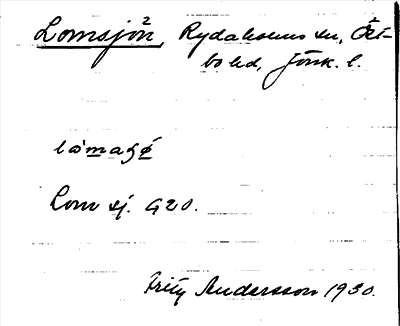 Lomsjön, Rydaholms sn, Öst-
bo hd, Jönk. l.
Lom sj. G20.
Fritz Andersson 1930.